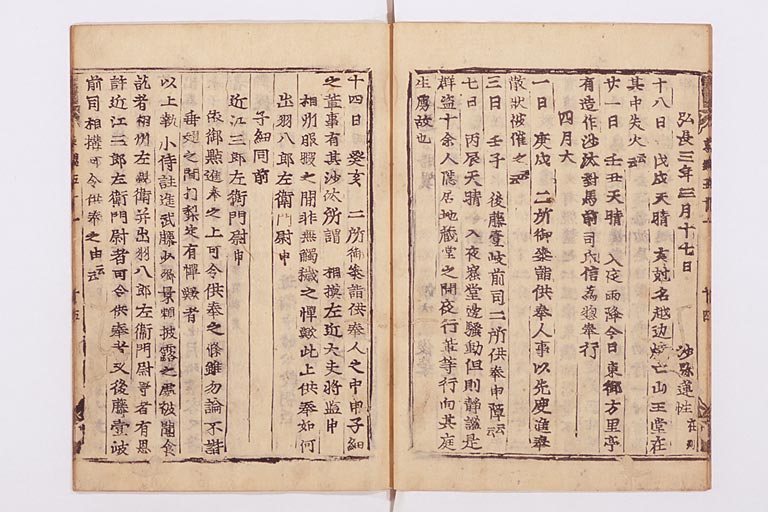 弘長三年三月十七日　沙弥蓮性 在判
十八日　戊戌天晴　亥　名越辺焼亡山王堂在
其中失火云云
廿一日　壬丑天晴　入夜雨降今日東御方里亭
有造作沙汰対馬前司氏信為奉行
四月大
一日　庚戌　二所御参詣供奉人事以先度進奉
散状被催之云云
三日　壬子　後藤壹岐前司二所供奉申障云云
七日　丙辰天晴　入夜窟堂辺騒動但則静謐是
群盗十余人隠居地蔵堂之間夜行輩等行向其庭
生虜故也
十四日　癸亥　二所御参詣供奉人之中申子細
之輩事有其沙汰所謂　相模左近大夫将監申
相州服暇之間非無触穢之憚歟此上供奉如何
出羽八郎左衛門尉申
子細同前
近江三郎左衛門尉申
依御点進奉之上可令供奉之條雖勿論不諧
之間打 定有憚歟者
以上執小侍註進武藤少卿景頼披露之處被聞食
訖者相州左親衛并出羽八郎左衛門尉等者有恩
許近江三郎左衛門尉者可令供奉者又後藤壹岐
前司相構可令供奉之由云云